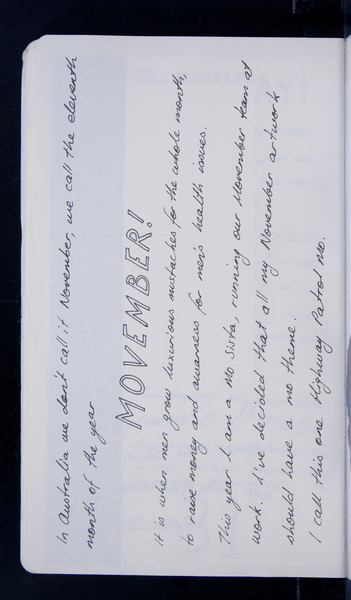 In Australia we don't call it November, we call the eleventh
month of the year
MOVEMBER!
It is when men grow luxurious mustaches for the whole month,
to raise money and awareness for men's health issues.
This year I am a Mo Sista, running our Movember team at
work. I've decided that all my November artwork
should have a mo theme.
I call this one Highway Patrol Mo.